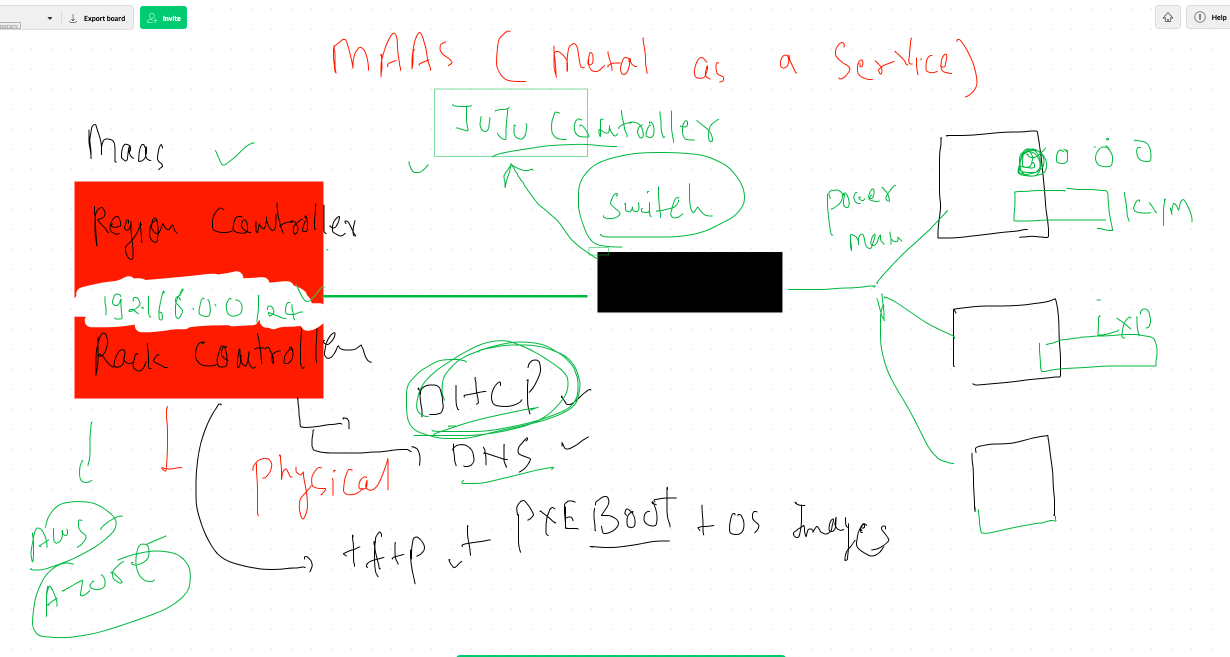 Export board
Invite
Help
MAAS ( Metal as a Service)
JuJu Controller
Maas
switch
Region Controller
192.168.0.0/24
Rack Controller
power
man
KVM
LXD
DHCP
DNS
Physical
tftp + PXE Boot + OS Images
AWS
Azore